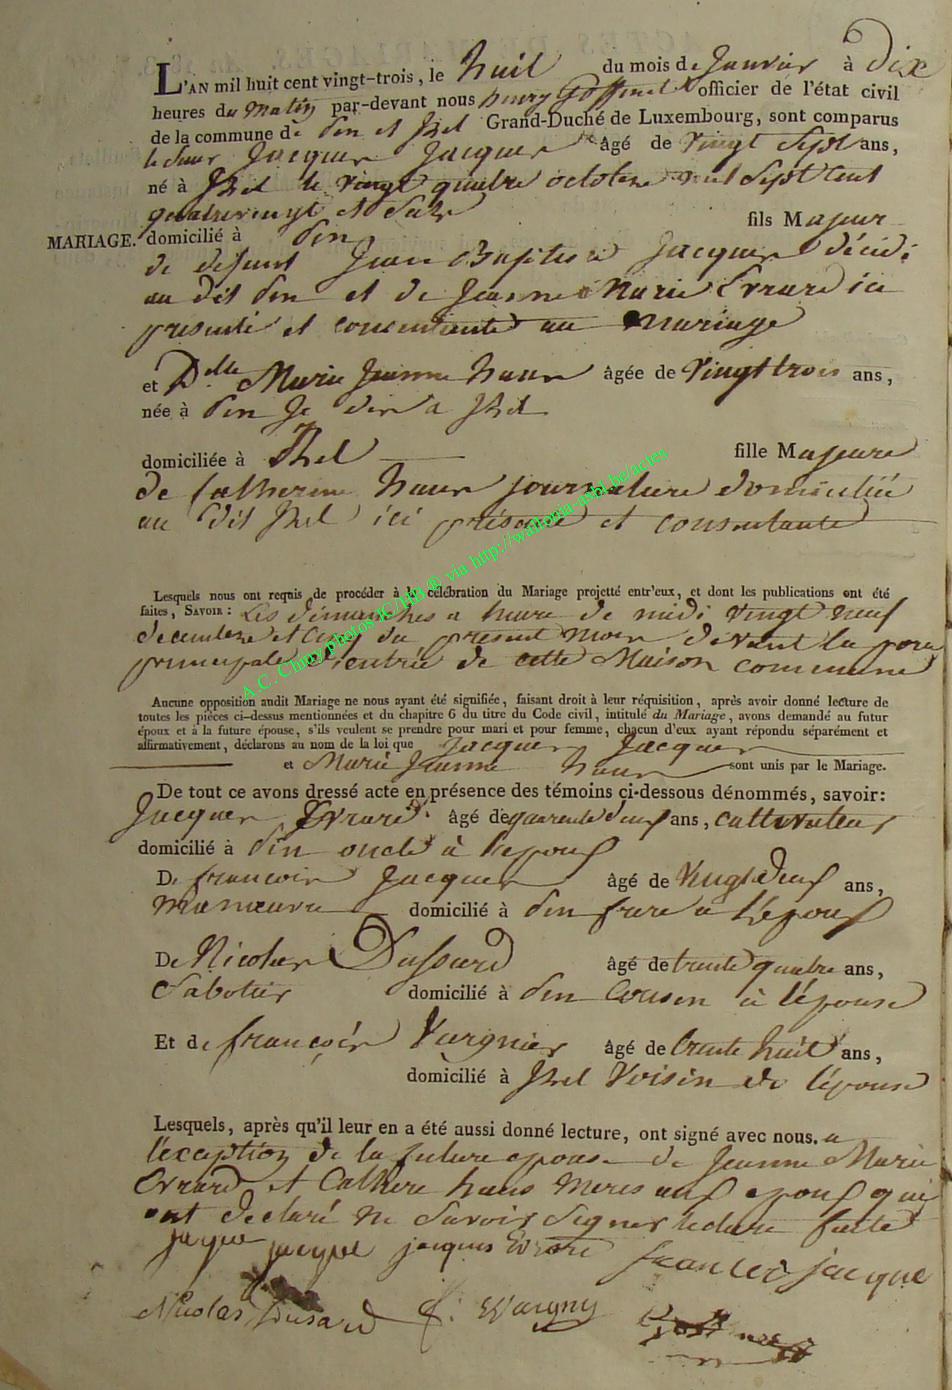 L'AN mil huit cent vingt-trois, le huit du mois de Janvier à Dix
heures du matin par-devant nous henry Goffinet officier de l'état civil
de la commune de pin et Izel Grand-Duché de Luxembourg, sont comparus
le sieur Jacques Jacques âgé de vingt sept ans,
né à Izel le vingt quatre octobre mil sept cent
quatrevingt et
MARIAGE. domicilié à pin fils Majeur
de defunt Jean Baptiste Jacques décédé
au dit pin et de Jeanne Marie Errard ici
presente et consentante au mariage
et Dlle Marie Jeanne haun âgée de vingt trois ans,
née à pin a Izel
domiciliée à Izel fille Majeure
de Catherine haun journaliere domiciliée
au dit Izel ici présente et consentante
Lesquels nous ont requis de procéder à la célébration du Mariage projetté entr'eux, et dont les publications ont été
faites, SAVOIR : Les dimanches a heure de midi vingt neuf
decembre et cinq du present mois devant la porte
principale d'entrée de cette Maison commune
Aucune opposition audit Mariage ne nous ayant été signifiée, faisant droit à leur réquisition, après avoir donné lecture de
toutes les pièces ci-dessus mentionnées et du chapitre 6 du titre du Code civil, intitulé du Mariage, avons demandé au futur
époux et à la future épouse, s'ils veulent se prendre pour mari et pour femme, chacun d'eux ayant répondu séparément et
affirmativement, déclarons au nom de la loi que Jacques Jacques
et Marie Jeanne haun sont unis par le Mariage.
De tout ce avons dressé acte en présence des témoins ci-dessous dénommés, savoir:
Jacques Errard âgé de quarente deux ans, cultivateur
domicilié à pin oncle à l'epoux
De francois Jacques âgé de vingt deux ans,
manoeuvre domicilié à pin frere a l'époux
De Nicolas Dussard âgé de trente quatre ans,
Sabotier domicilié à pin cousin à l'épouse
Et de françois Vurgnies âgé de trente huit ans,
domicilié à Izel voisin de l'épouse
Lesquels, après qu'il leur en a été aussi donné lecture, ont signé avec nous. a
l'exception de la future epouse de Jeanne Marie
Errard et Cathere haun meres aux epoux qui
ont declaré ne savoir signer lecture faite
jaque jacque jacques Errard francois jacque
Nicolas Dusard f. Wargny
A.C. Chiny photos JC/HB ® via http://wallonia-asbl.be/actes